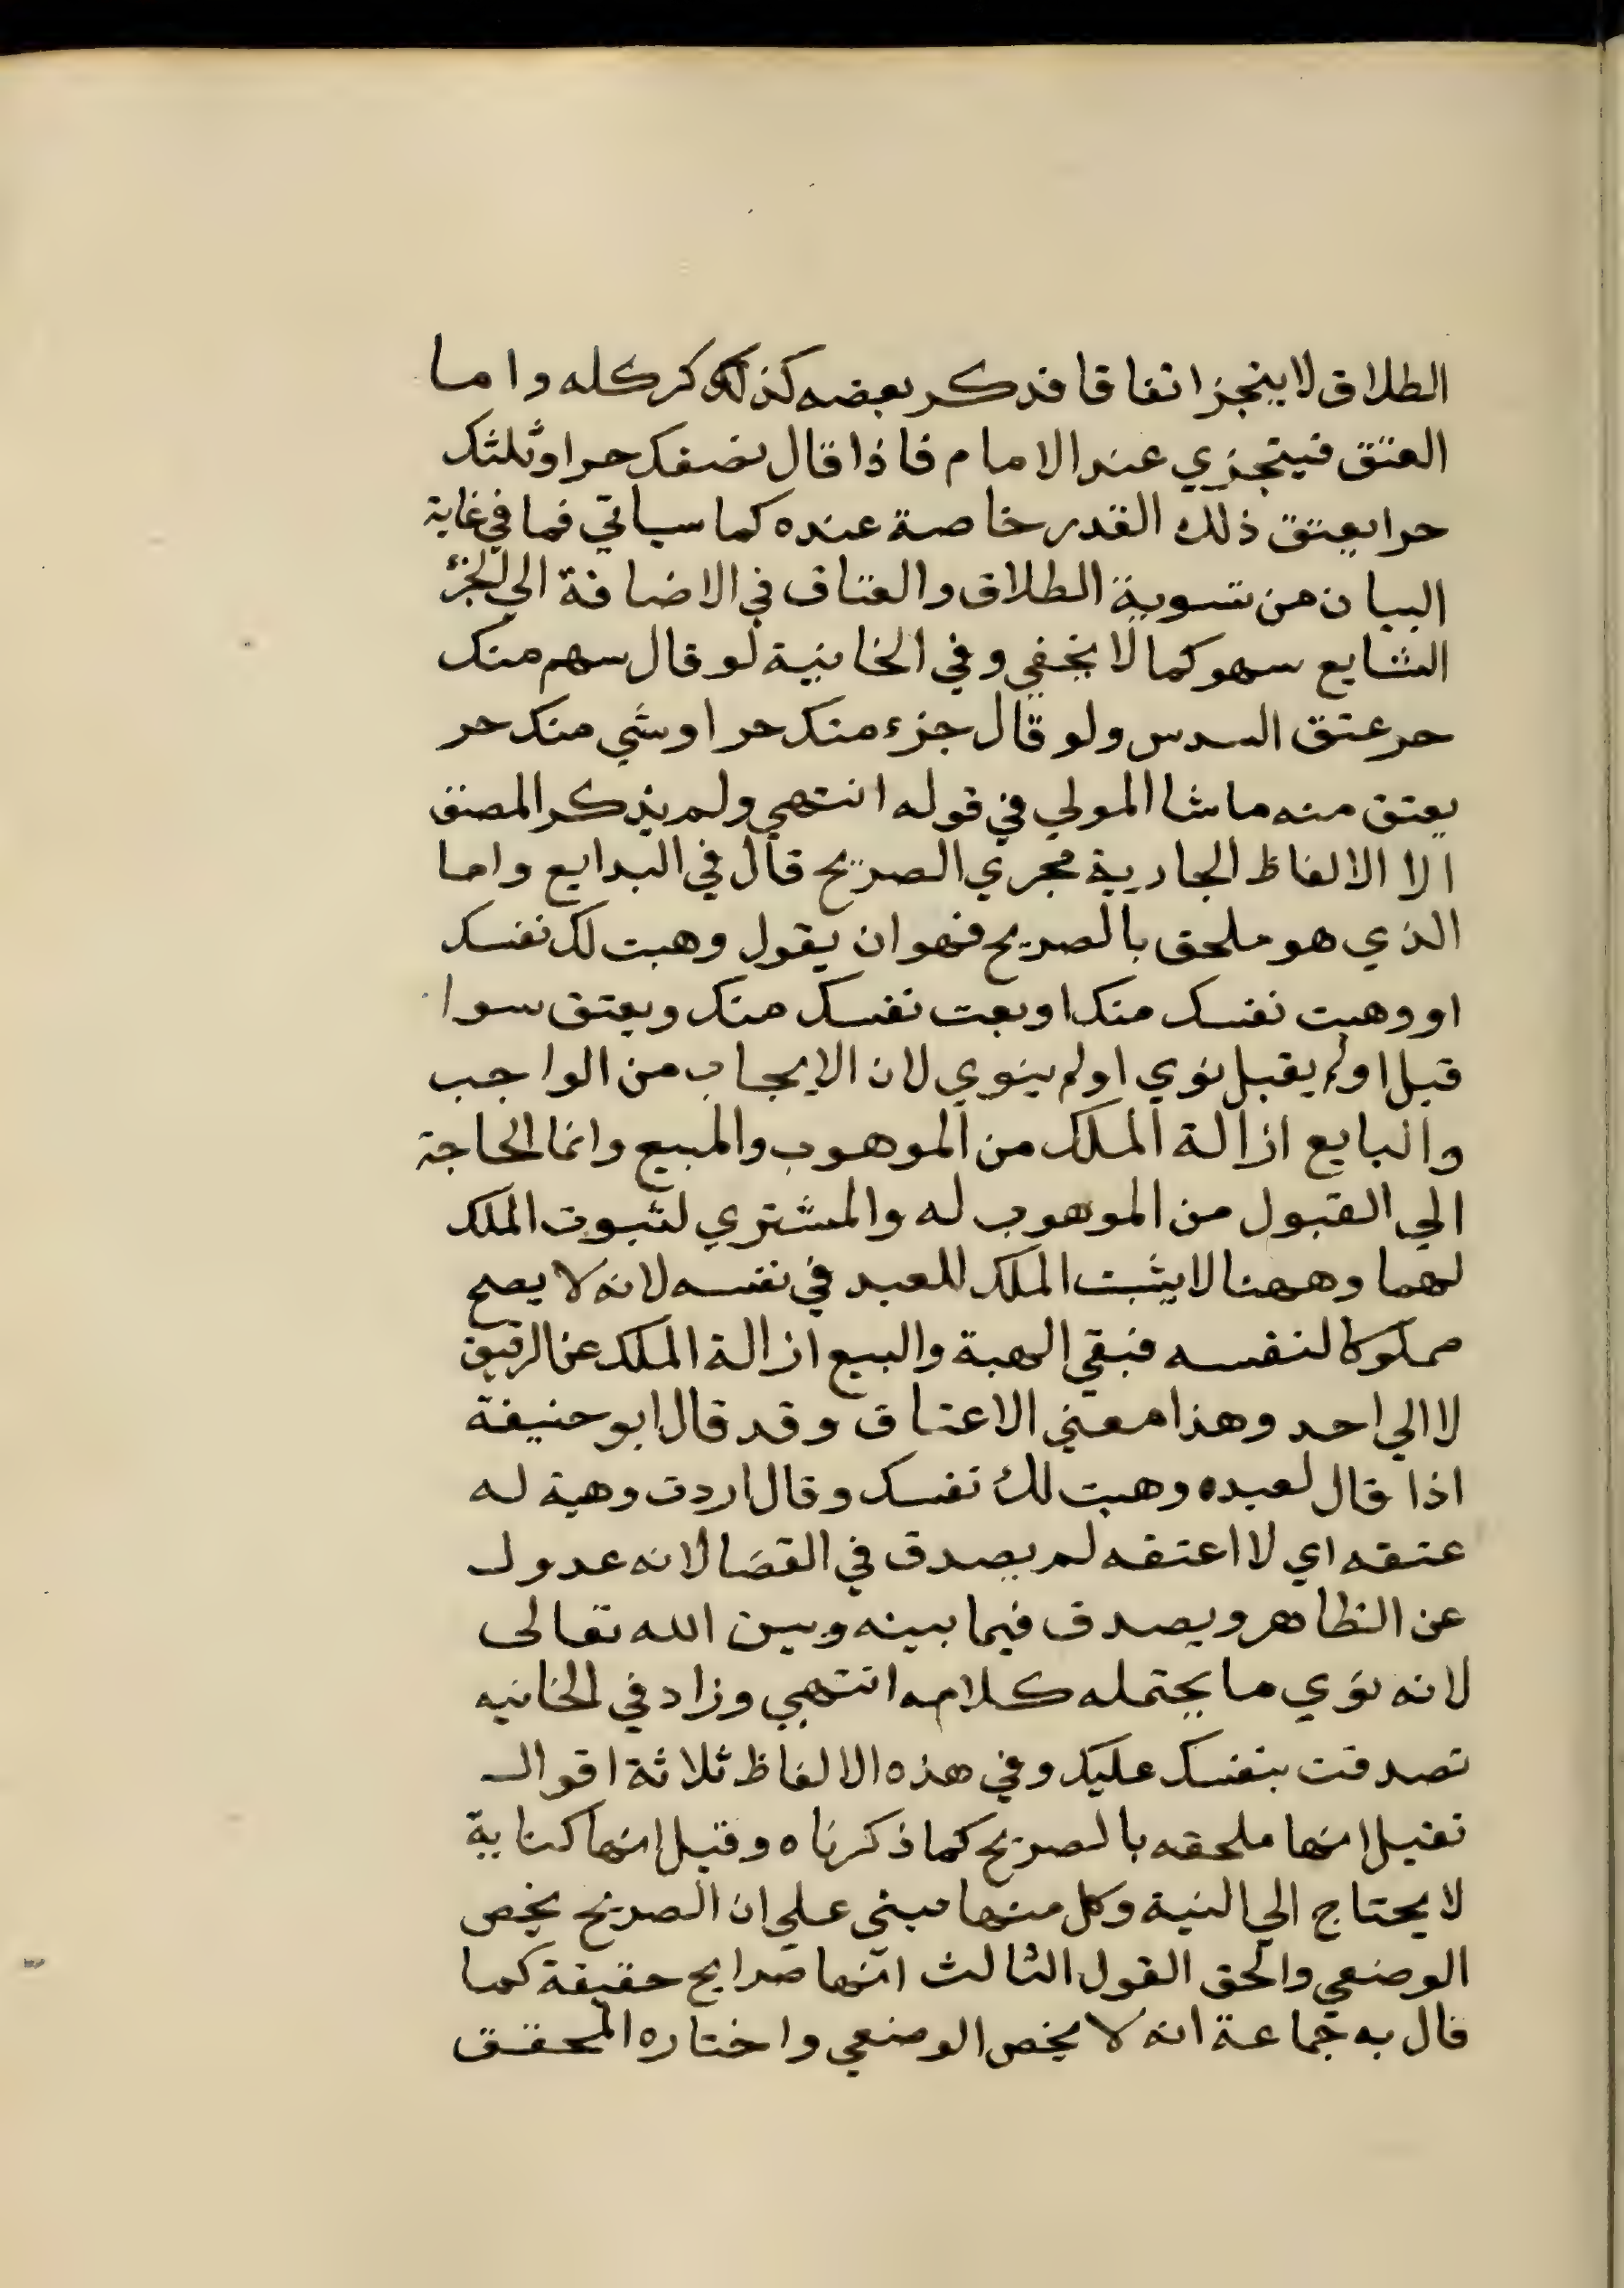 الطلاق لا ينجز اتفاقا فذكر بعضه كذلك كركله واما
العتق فيتجزي عند الامام فاذا قال نصفك حر او ثلثك
حر ايعتق ذلك القدر خاصة عنده كما سياتي فما في غاية
البيان من تسوية الطلاق والعتاق في الاضافة الي الجزء
الشايع سهو كما لا يخفي وفي الخانية لو قال سهم منك
حر عتق السدس ولو قال جزء منك حر او شي منك حر
يعتق منه ما شا المولي في قوله انتهي ولم يذكر المصنف
الا الالفاظ الجارية مجري الصريح قال في البدايع واما
الذي هو ملحق بالصريح فهو ان يقول وهبت لك نفسك
او وهبت نفسك منك او بعت نفسك منك ويعتق سوا
قبل او لم يقبل نوي او لم ينوي لان الايجاب من الواجب
والبايع ازالة الملك من الموهوب والمبيع وانما الحاجة
الي القبول من الموهوب له والمشتري لثبوت الملك
لهما وههنا لا يثبت الملك للعبد في نفسه لانه لا يصح
مملوكا لنفسه فبقي الهبة والبيع ازالة الملك عن الرقيق
لا الي احد وهذا معني الاعتاق وقد قال ابو حنيفة
اذا قال لعبده وهبت لك نفسك وقال اردت وهبة له
عتقه اي لا اعتقه لم يصدق في القضا لانه عدول
عن الظاهر ويصدق فيما بينه وبين الله تعالى
لانه نوي ما يحتمله كلامه انتهي وزاد في الخانيه
تصدقت بنفسك عليك وفي هذه الالفاظ ثلاثة اقوال
نقيل انها ملحقه بالصريح كما ذكرناه وقيل انها كناية
لا يحتاج الي النية وكل منها مبني علي ان الصريح يخص
الوضعي والحق القول الثالث انها صرايح حقيقة كما
قال به جماعة انه لا يخص الوضعي واختاره المحقق